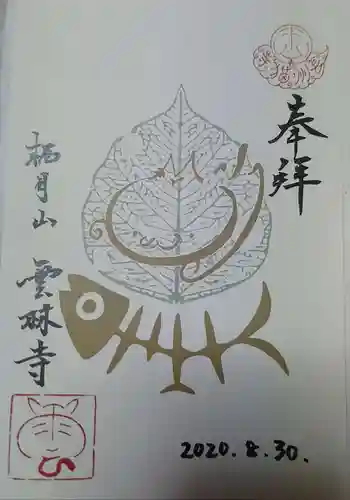 奉拝
栖月山 雲林寺
2020.8.30.